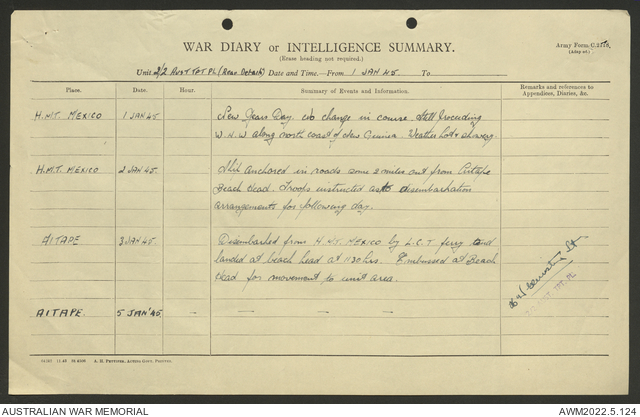 WAR DIARY or INTELLIGENCE SUMMARY.
Army Form C.2118.
(Erase heading not required.)
Unit 2/2 AUST TPT PL (Rear Details) Date and Time—From 1 JAN 45 To
Place. Date. Hour. Summary of Events and Information. Remarks and references to Appendices, Diaries, &c.
H.M.T. MEXICO 1 JAN 45 New Years Day. No change in course. Still proceeding
W.N.W along north coast of New Guinea. Weather hot & showery.
H.M.T. MEXICO 2 JAN 45. Ship anchored in roads some 2 miles out from Aitape
Beach Head. Troops instructed as to disembarkation
arrangements for following day.
AITAPE 3 JAN 45. Disembarked from H.M.T. MEXICO by L.C.T ferry and
landed at beach head at 1130 hrs. Embussed at Beach
Head for movement to unit area.
AITAPE. 5 JAN '45. — — — — —
AUSTRALIAN WAR MEMORIAL
AWM2022.5.124